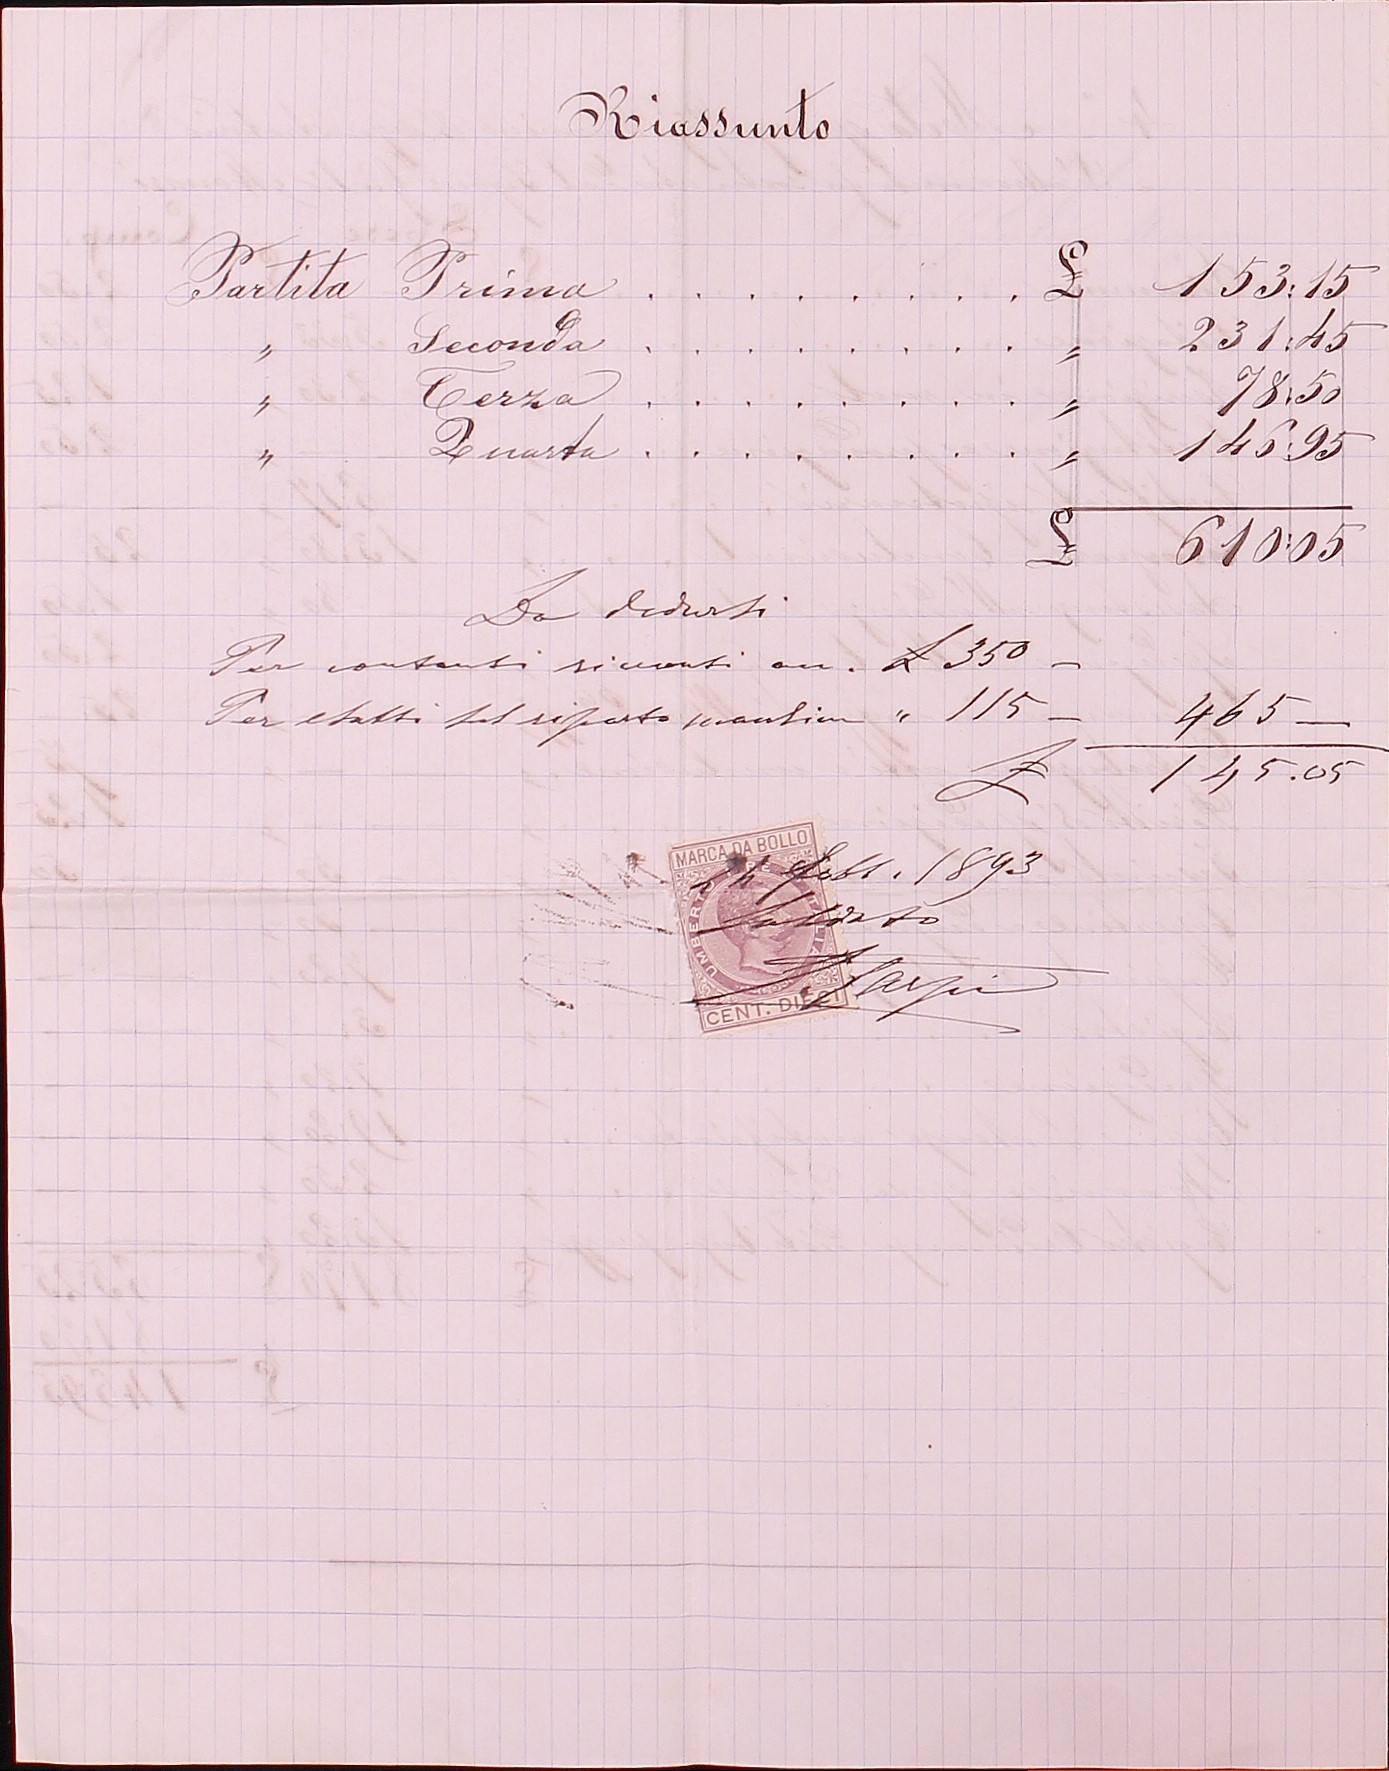 Riassunto
Partita Prima . . . . . . . . £ 153:15
" Seconda . . . . . . . . " 231:45
" Terza . . . . . . . . " 78:50
" Quarta . . . . . . . . " 146:95
£ 610:05
Da dedursi
Per contanti ricevuti £ 350 —
Per " 115 — 465 —
£ 145.05
MARCA DA BOLLO
UMBERTO I RE D'ITALIA
CENT. DIECI
Febb. 1893
Saldato